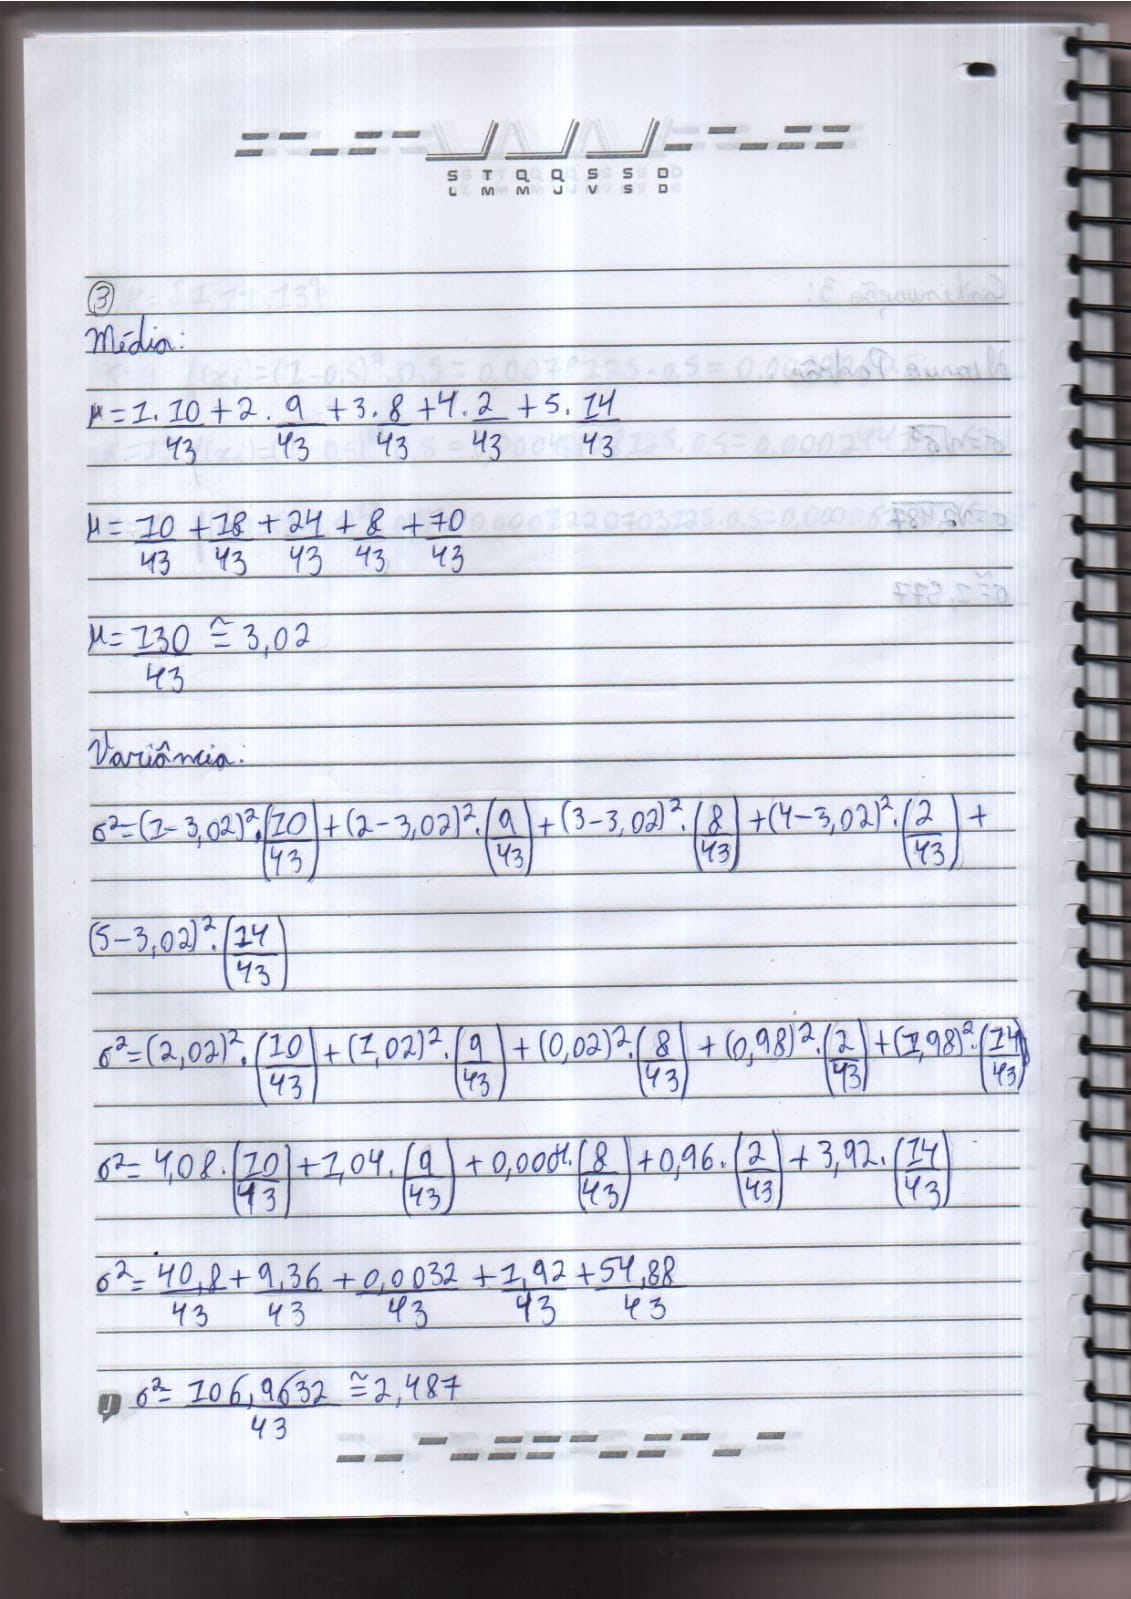 S T Q Q S S D
L M M J V S D
③
Média:
μ = 1 . 10/43 + 2 . 9/43 + 3 . 8/43 + 4 . 2/43 + 5 . 14/43
μ = 10/43 + 18/43 + 24/43 + 8/43 + 70/43
μ = 130/43 ≅ 3,02
Variância:
σ² = (1 - 3,02)² . (10/43) + (2 - 3,02)² . (9/43) + (3 - 3,02)² . (8/43) + (4 - 3,02)² . (2/43) +
(5 - 3,02)² . (14/43)
σ² = (2,02)² . (10/43) + (1,02)² . (9/43) + (0,02)² . (8/43) + (0,98)² . (2/43) + (1,98)² . (14/43)
σ² = 4,08 . (10/43) + 1,04 . (9/43) + 0,0004 . (8/43) + 0,96 . (2/43) + 3,92 . (14/43)
σ² = 40,8/43 + 9,36/43 + 0,0032/43 + 1,92/43 + 54,88/43
σ² = 106,9632/43 ≅ 2,487